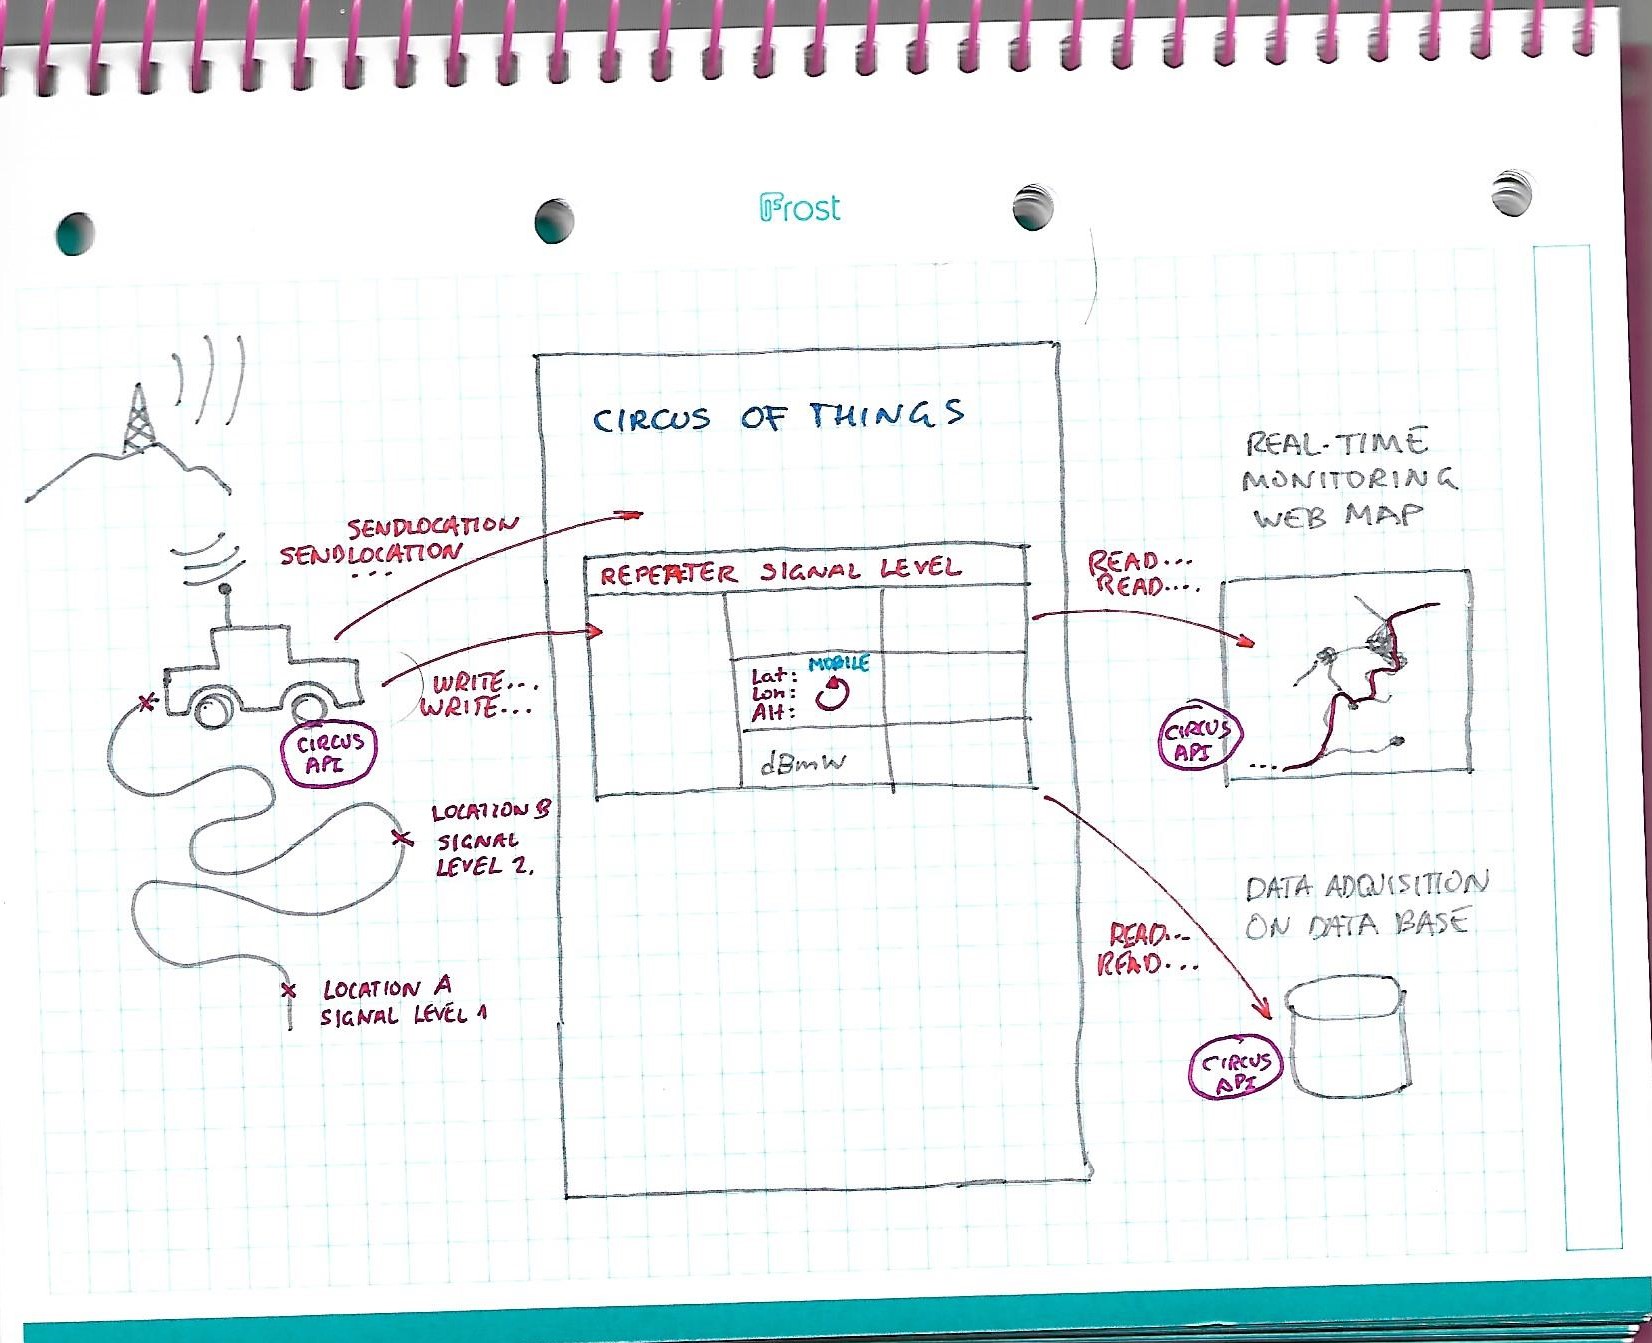 Frost
CIRCUS OF THINGS
SENDLOCATION
SENDLOCATION
...
REPEATER SIGNAL LEVEL
Lat: MOBILE
Lon:
Alt:
dBmW
WRITE...
WRITE...
CIRCUS
API
LOCATION B
SIGNAL
LEVEL 2.
LOCATION A
SIGNAL LEVEL 1
REAL-TIME
MONITORING
WEB MAP
READ...
READ....
CIRCUS
API
...
DATA ADQUISITION
ON DATA BASE
READ...
READ...
CIRCUS
API